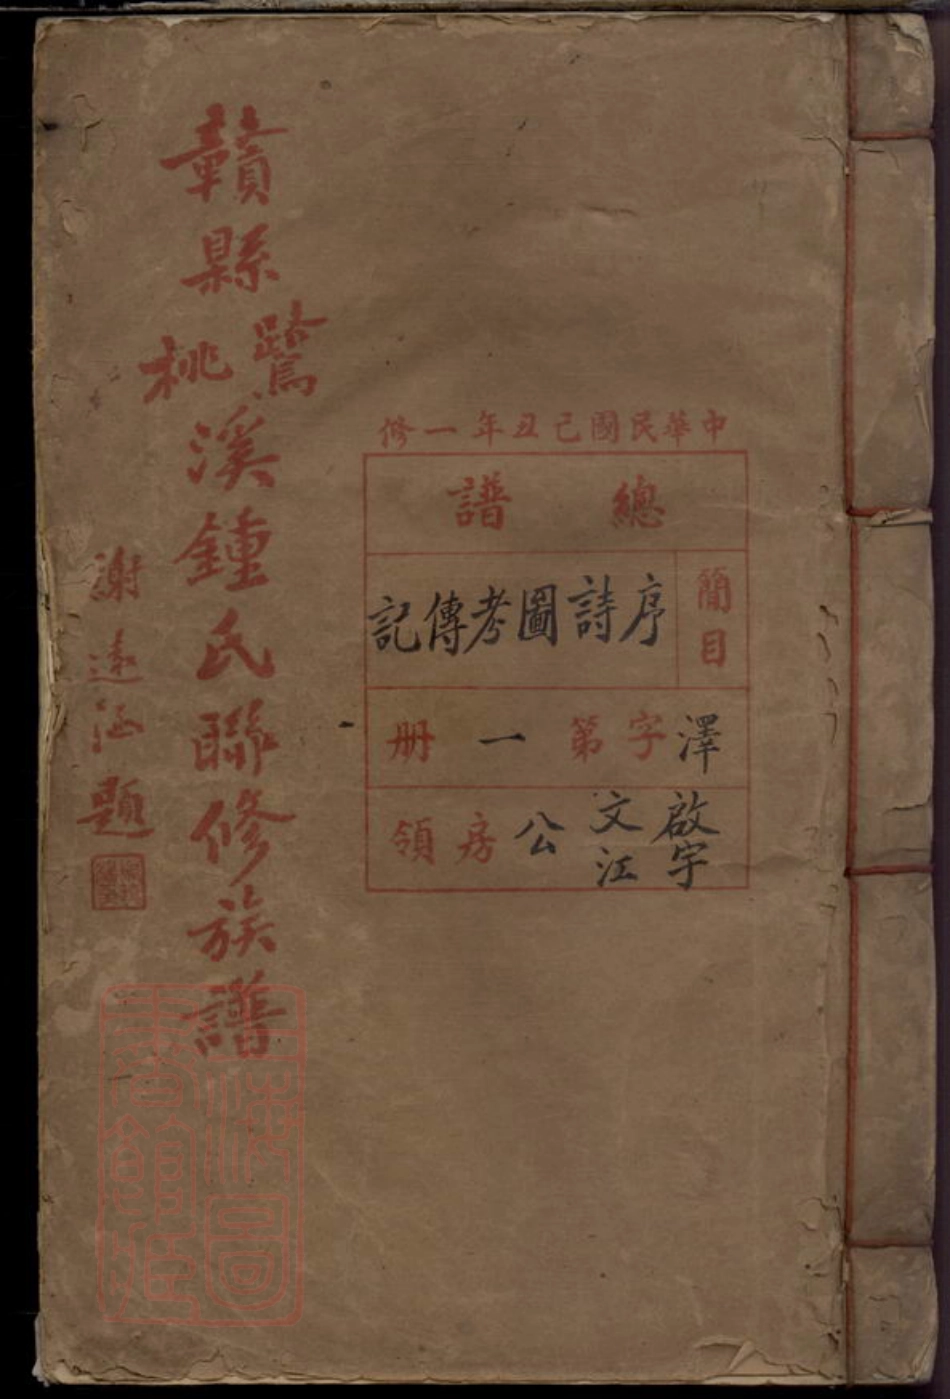 中華民國己丑年一修
總譜
簡目
序詩圖考傳記
澤字第一册
啟宇文江公房領
贛縣鷺桃溪鍾氏聯修族譜
謝遠涵題
上海圖書館藏